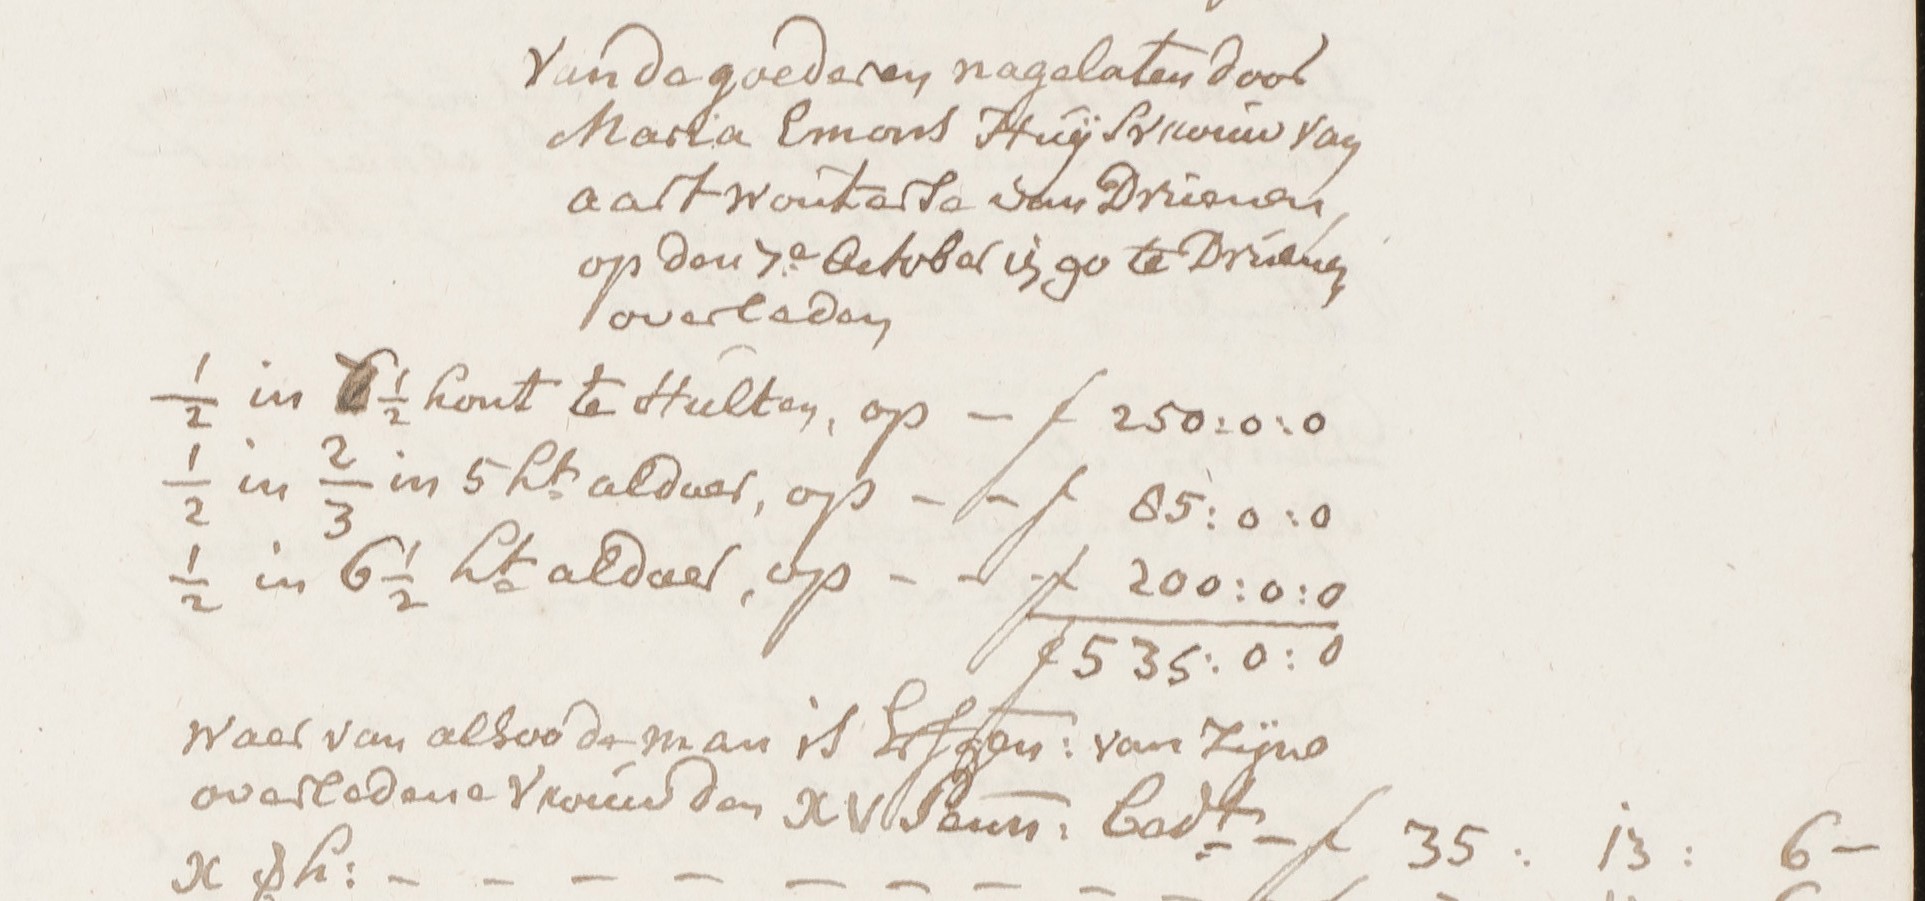 Van de goederen nagelaten door
Maria Emons Huijsvrouw van
aart wouterse van Drunen,
op den 7e October 1790 te Drunen
overleden
1/2 in 6 1/2 hont te Hulten, op - f 250:0:0
1/2 in 2/3 in 5 ht aldaer, op - - f 85:0:0
1/2 in 6 1/2 ht aldaer, op - - - f 200:0:0
f 535:0:0
waer van alsoo de man is Erfgen: van zijne
overledene vrouw den XV Penn: bedt - f 35: 13: 6 -
X ph: - - - - - - - - -